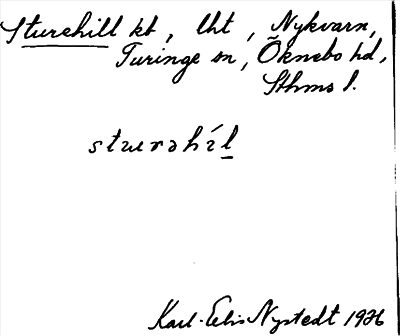 Sturehill kt, lht, Nykvarn,
Turinge sn, Öknebo hd,
Sthms l.
stuʀəhíl
Karl-Eric Nystedt 1926